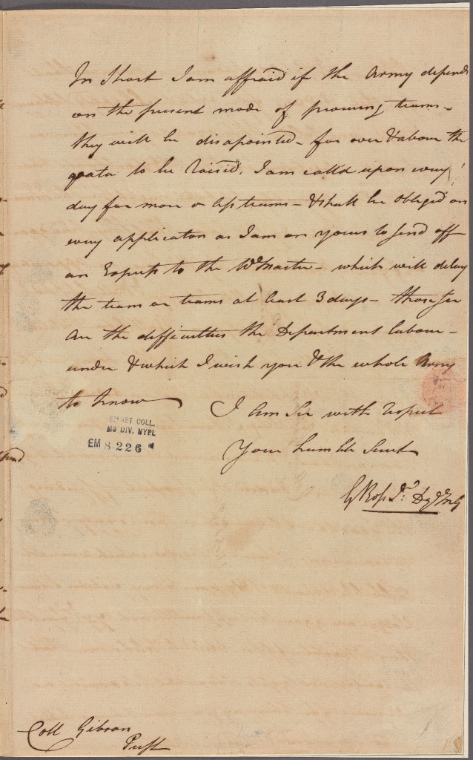 In Short I am affraid if the Army depends
on the present mode of procuring teams -
they will be disapointed - for over & above the
qoata to be Raised, I am calld upon every
day for more or less teams - & shall be obliged on
every application as I am on yours to send off
an Express to the Wn Master - which will delay
the team or teams at least 3 days - these Sir
are the difficulties the Department labour -
under & which I wish you & the whole Army
to know
I Am Sir with respect
Your humble Servt
G Ross Jr. D
EMMET COLL.
MS DIV. NYPL
EM 8226
Coll Gibson
Prest